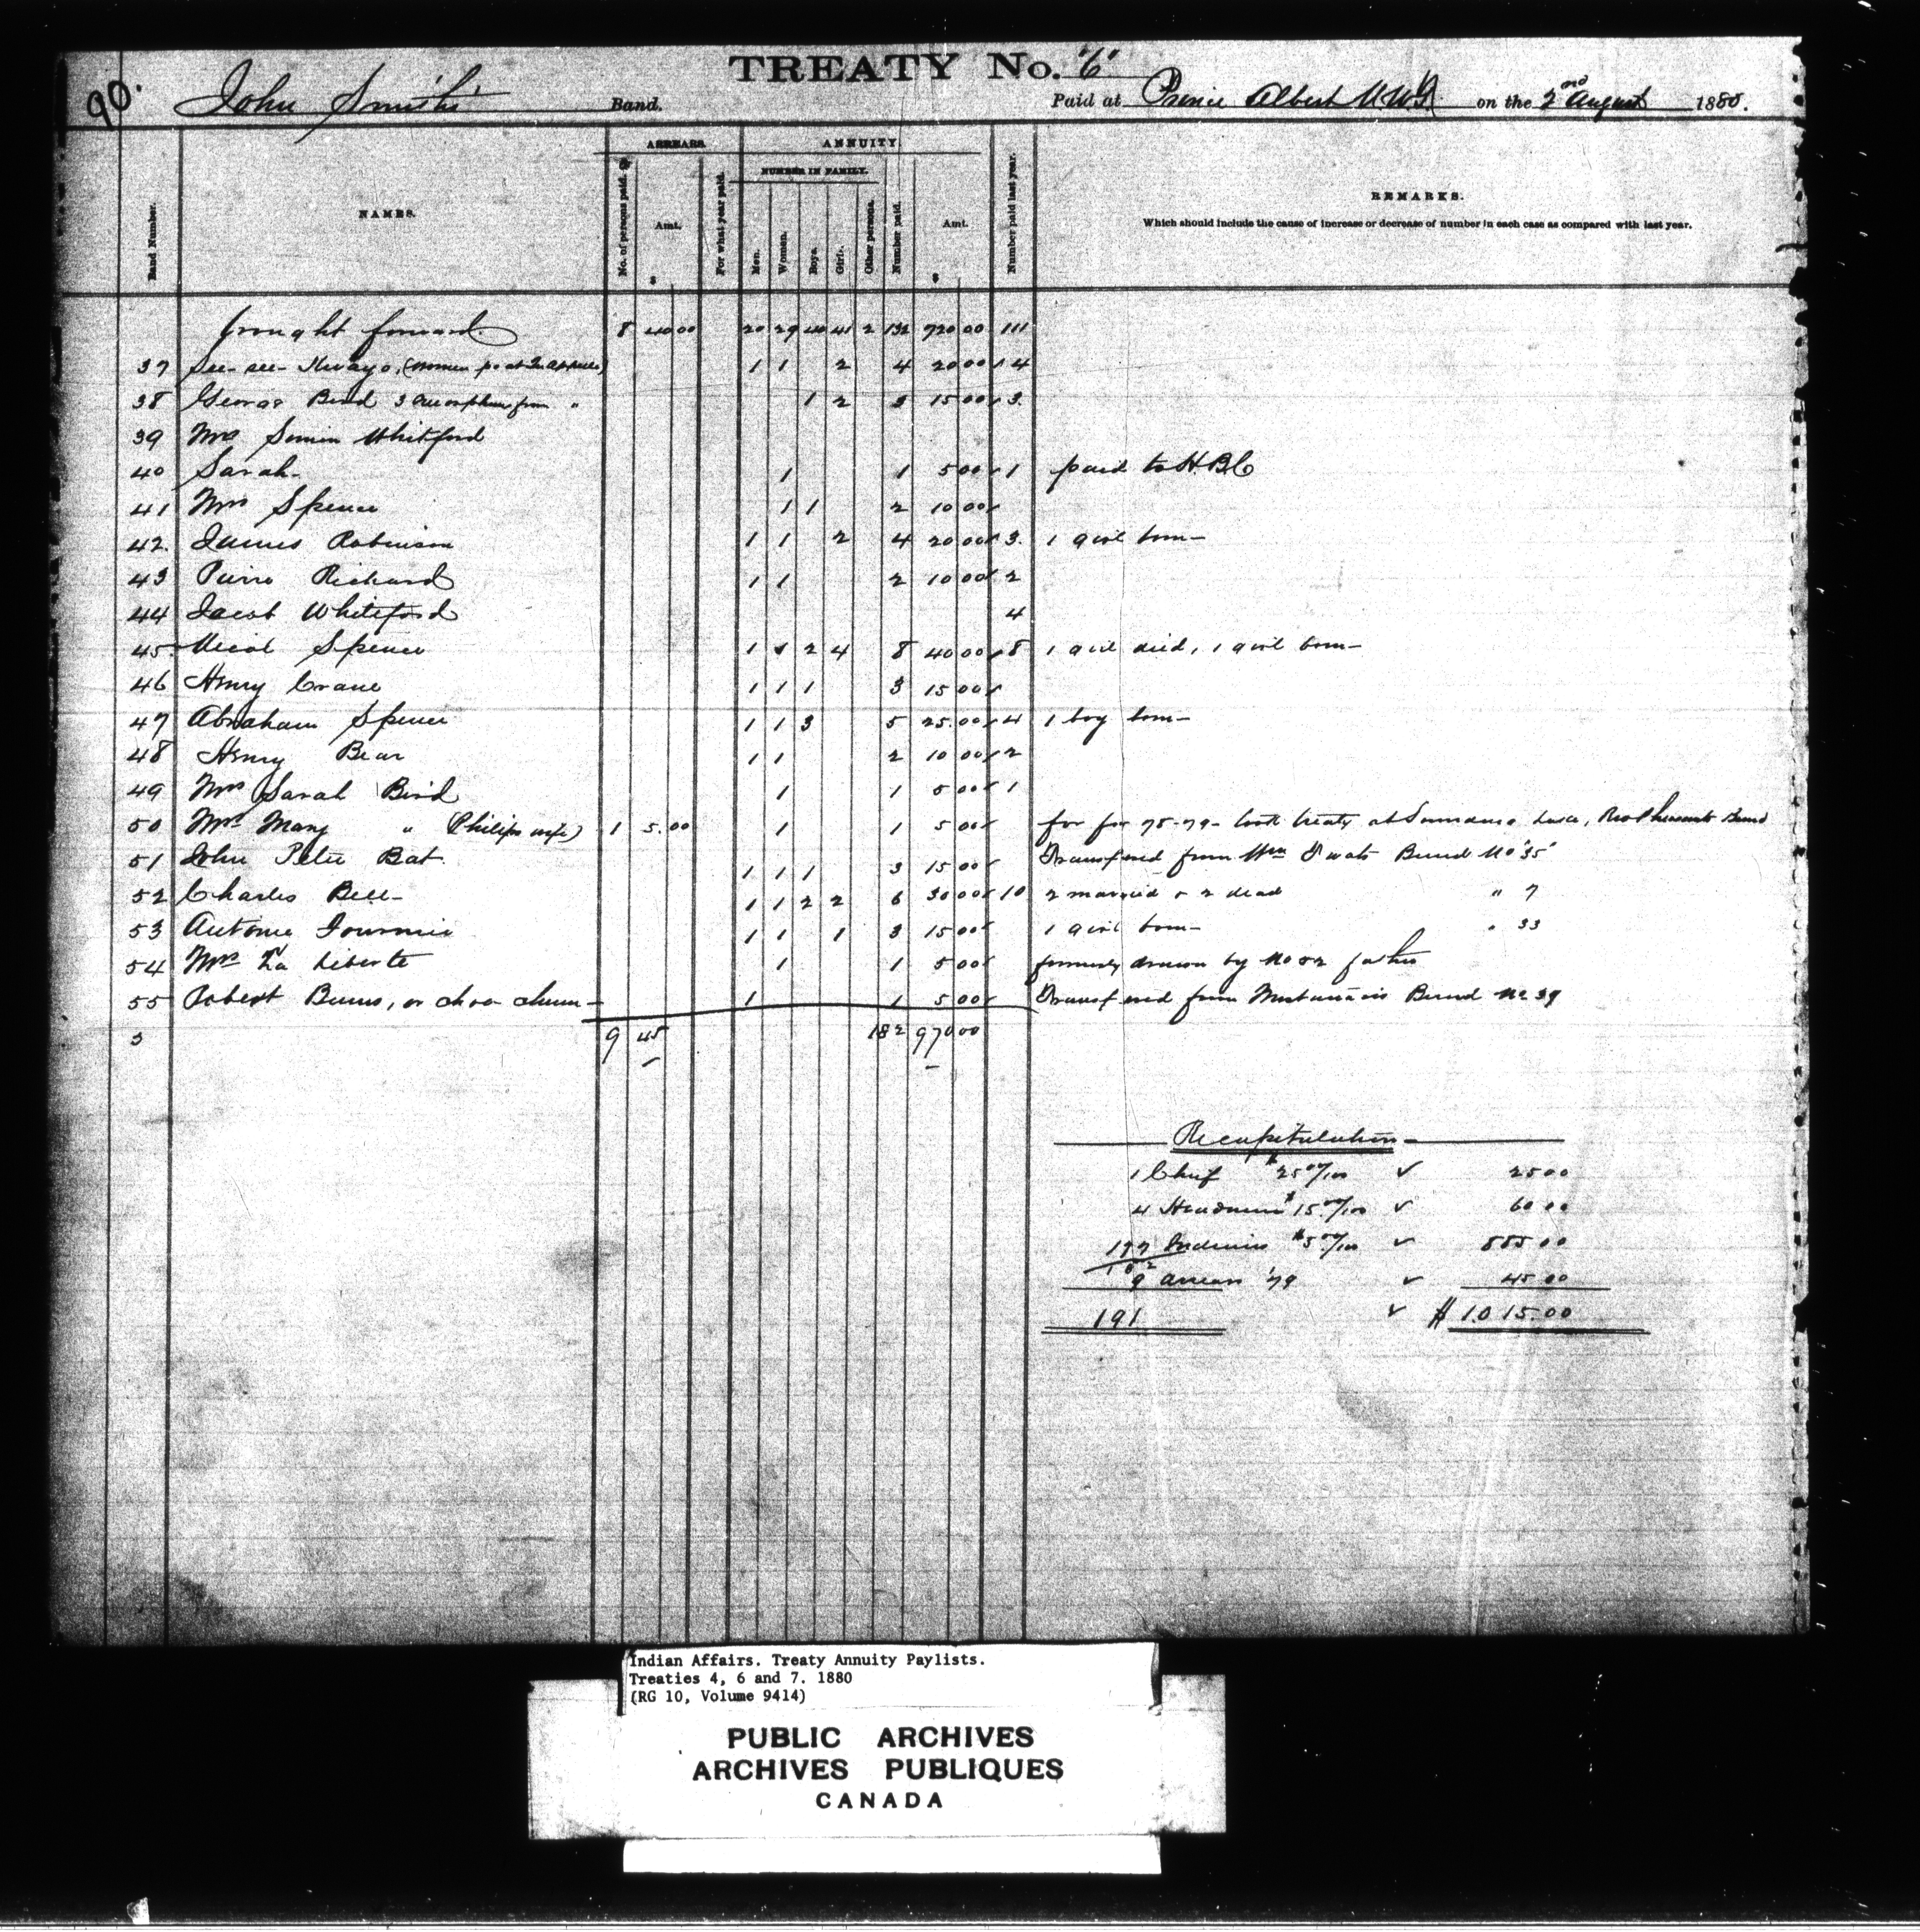 90.
TREATY No. "6"
John Smith's Band. Paid at Prince Albert N.W.T. on the 2nd August 1880.
ARREARS. ANNUITY.
NUMBER IN FAMILY.
Band Number. NAMES. No. of persons paid. Amt. $ For what year paid. Men. Women. Boys. Girls. Other persons. Number paid. Amt. $ Number paid last year. REMARKS.
Which should include the cause of increase or decrease of number in each case as compared with last year.
brought forward 8 40 00 20 29 40 41 2 132 720 00 111
37 See-see- (women pd at Qu'appelle) 1 1 2 4 20 00 4
38 George Bird 3 orphans from " 1 2 3 15 00 3.
39 Mrs Whitford
40 Sarah- 1 1 5 00 1 paid to H.B.C
41 Mrs Spence 1 1 2 10 00
42. James Robinson 1 1 2 4 20 00 3. 1 girl born-
43 Pierre Richard 1 1 2 10 00 2
44 Jacob Whiteford 4
45. Spence 1 1 2 4 8 40 00 8 1 girl died, 1 girl born-
46 Henry Crane 1 1 1 3 15 00
47 Abraham Spence 1 1 3 5 25.00 4 1 boy born-
48 Henry Bear 1 1 2 10 00 2
49 Mrs Sarah Bird 1 1 5 00 1
50 Mrs Mary " (Philip's wife) 1 5.00 1 1 5 00 for 78-79- took treaty at
51 John Peter Bat. 1 1 1 3 15 00 Transferred from Wm Twats Band No "35"
52 Charles Bell- 1 1 2 2 6 30 00 10 2 married & 2 dead " 7
53 Antoine 1 1 1 3 15 00 1 girl born- " 33
54 Mrs La Liberte 1 1 5 00 formerly drawn by No 52 father
55 Robert Burns, or 1 1 5 00 Transferred from Band No 39
3 9 45 182 970 00
Recapitulation-
1 Chief $25 00/100 ✓ 25 00
4 Headmen $15 00/100 ✓ 60 00
177 Indians $5 00/100 ✓ 885 00
182
9 arrears '79 ✓ 45 00
191 ✓ $1.015.00
Indian Affairs. Treaty Annuity Paylists.
Treaties 4, 6 and 7. 1880
(RG 10, Volume 9414)
PUBLIC ARCHIVES
ARCHIVES PUBLIQUES
CANADA